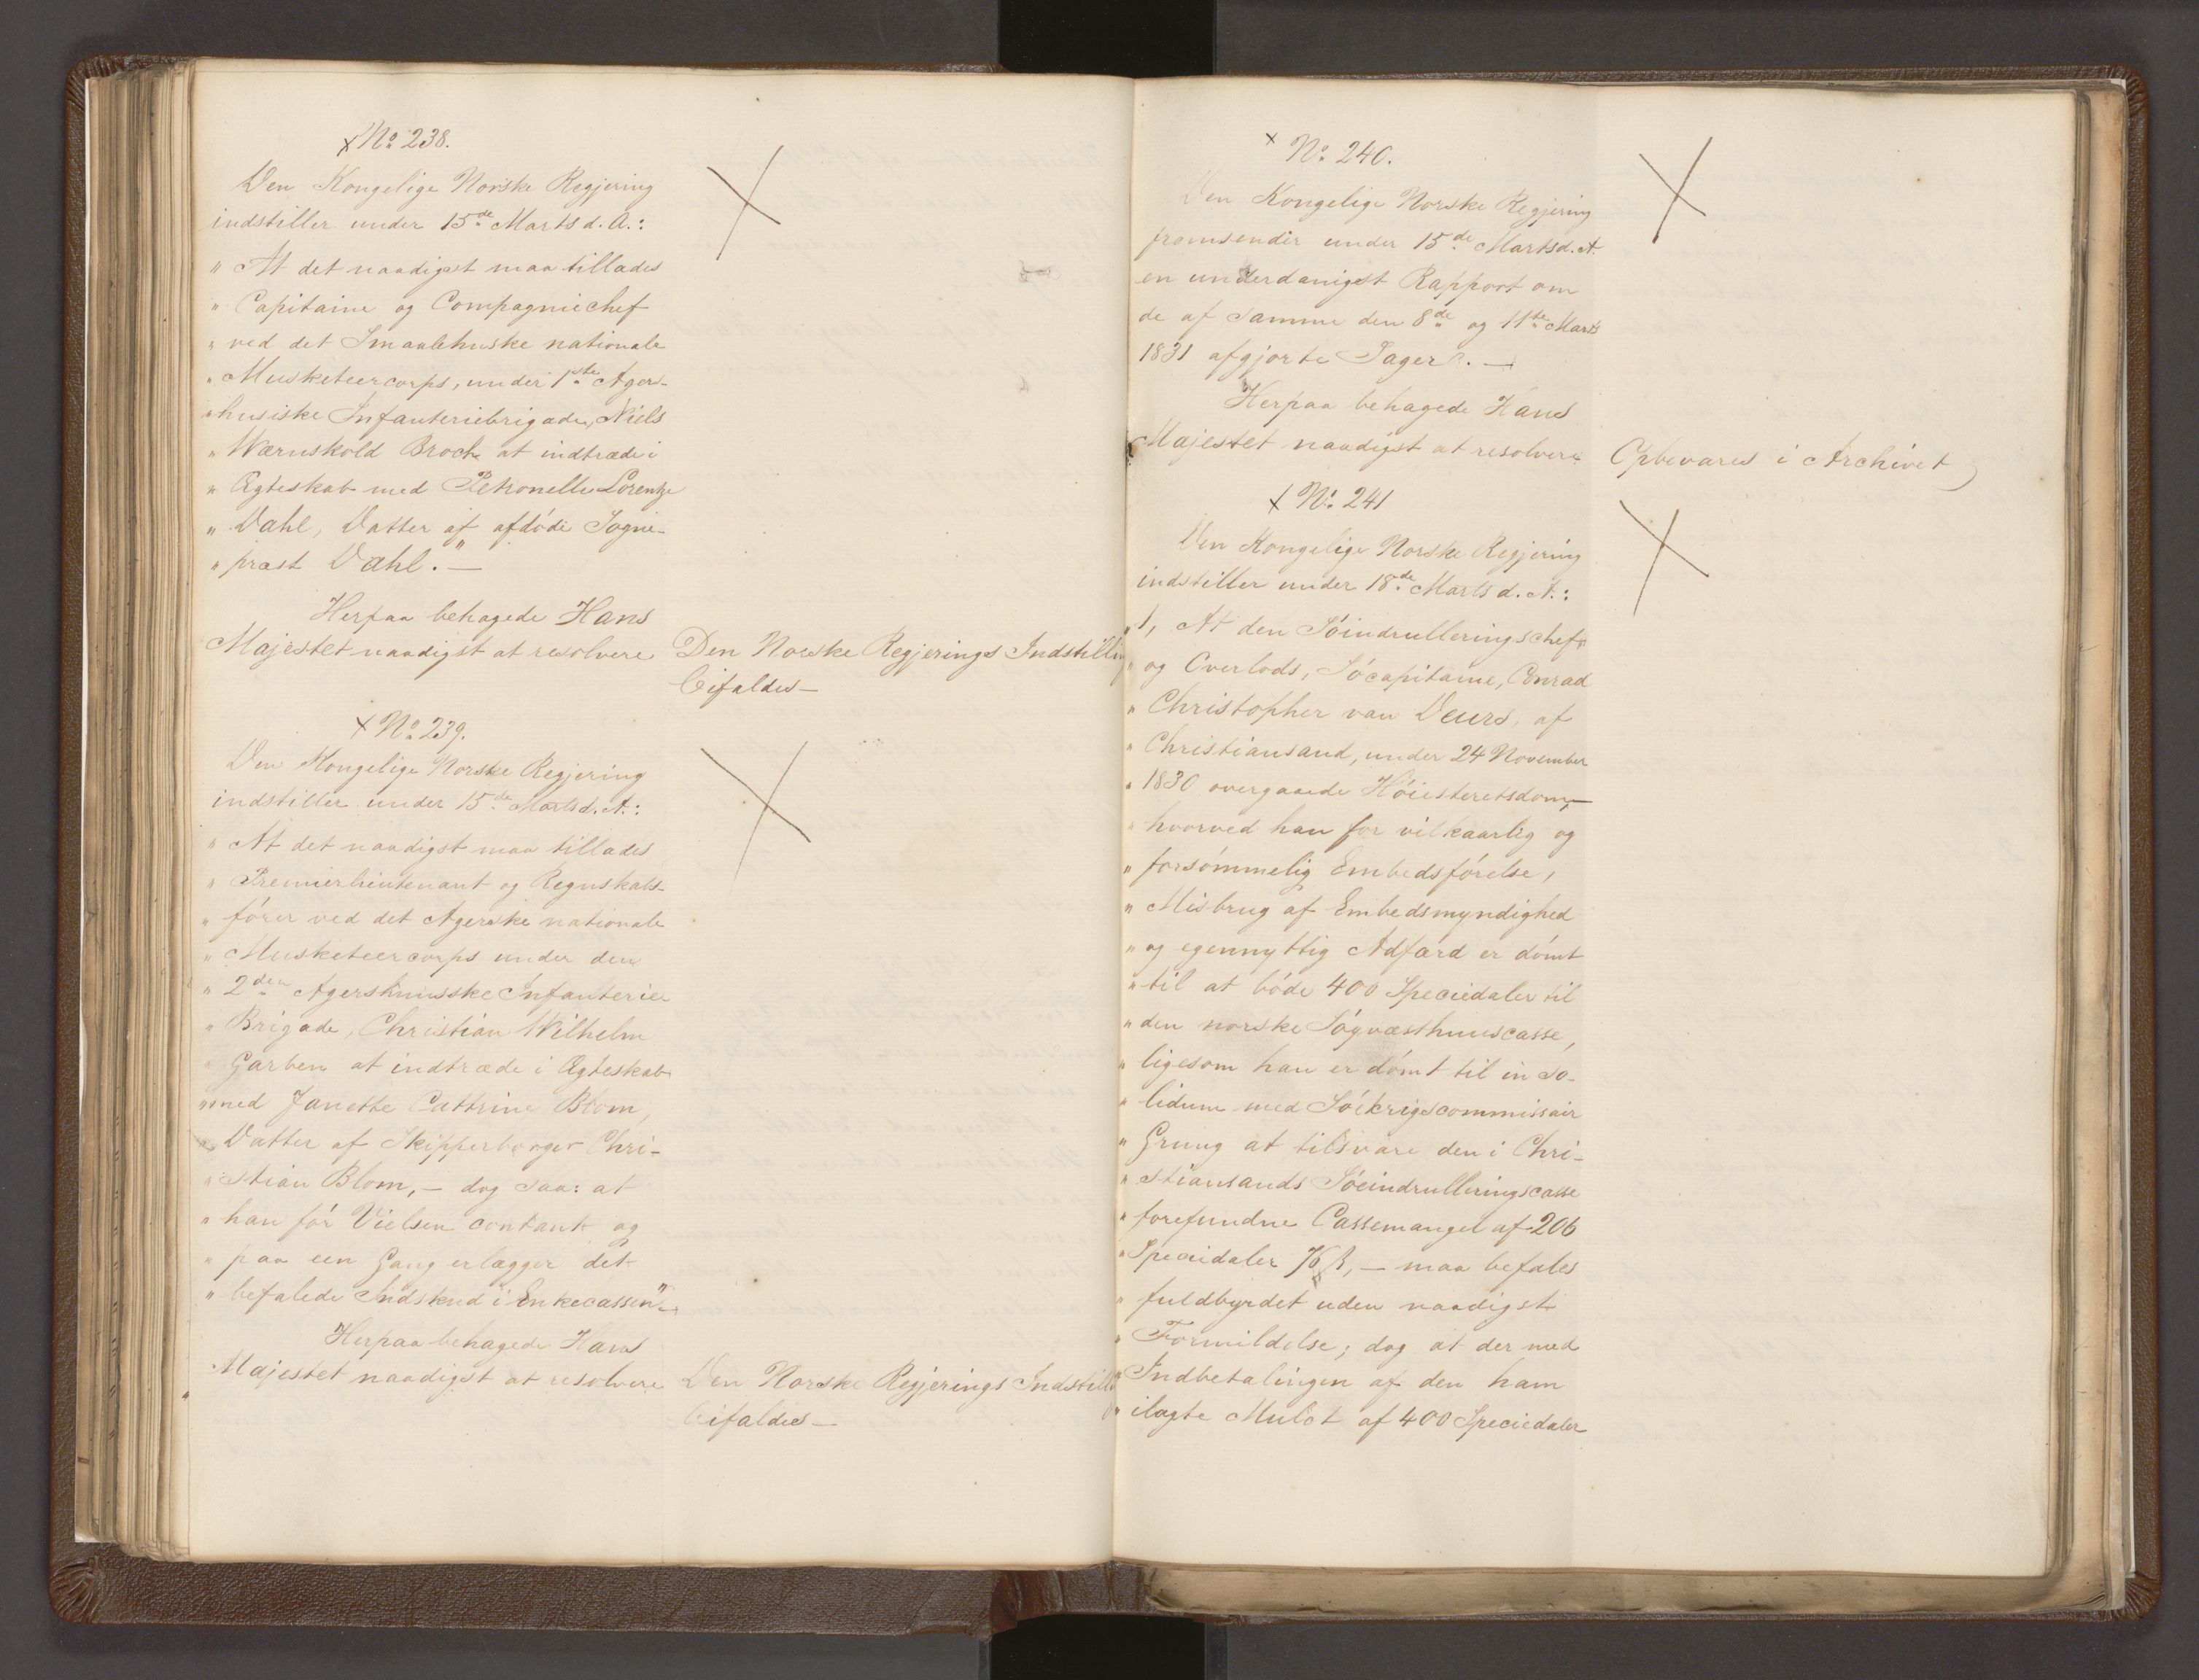 No 238.
Den Kongelige Norske Regjering
indstiller under 15de Marts d. A.:
" At det naadigst maa tillades
" Capitaine og Compagniechef
" ved det Smaalehnske nationale
" Musketeercorps, under 1ste Agers-
" husiske Infanteriebrigade, Niels
" Wærnskold Broch at indtræde i
" Ægteskab med Petronelle Lorentze
" Dahl, Datter af afdöde Sogne-
" præst Dahl." —
Herpaa behagede Hans
Majestet naadigst at resolvere
Den Norske Regjerings Indstilling
bifaldes —
No 239.
Den Kongelige Norske Regjering
indstiller under 15de Marts d. A.:
" At det naadigst maa tillades
" Premierlieutenant og Regnskabs-
" förer ved det Agerske nationale
" Musketeercorps under den
" 2den Agershuusske Infanterie
" Brigade, Christian Wilhelm
" Garben at indtræde i Ægteskab
" med Janette Cathrine Blom,
" Datter af Skipperborger Chri-
" stian Blom, — dog saa: at
" han för Vielsen contant og
" paa een Gang erlægger det
" befalede Indskud i Enkecassen" —
Herpaa behagede Hans
Majestet naadigst at resolvere
Den Norske Regjerings Indstilling
bifaldes —
No 240.
Den Kongelige Norske Regjering
fremsender under 15de Marts d. A.
en underdanigst Rapport om
de af Samme den 8de og 11te Marts
1831 afgjorte Sager. —
Herpaa behagede Hans
Majestet naadigst at resolvere
Opbevares i Archivet
No 241
Den Kongelige Norske Regjering
indstiller under 18de Marts d. A.:
" 1, At den Söindrulleringschef
" og Overlods, Söcapitaine, Conrad
" Christopher van Deurs, af
" Christiansand, under 24 November
" 1830 overgaaede Höiesteretsdom, —
" hvorved han for vilkaarlig og
" forsömmelig Embedsförelse,
" Misbrug af Embedsmyndighed
" og egennyttig Adfærd er dömt
" til at böde 400 Speciedaler til
" den norske Söqvæsthuuscasse,
" ligesom han er dömt til in so-
" lidum med Söekrigscommissair
" Grung at tilsvare den i Chri-
" stiansands Söeindrulleringscasse
" forefundne Cassemangel af 206
" Speciedaler 76 ß, — maa befales
" fuldbyrdet uden naadigst
" Formildelse; dog at der med
" Indbetalingen af den ham
" ilagte Mulct af 400 Speciedaler